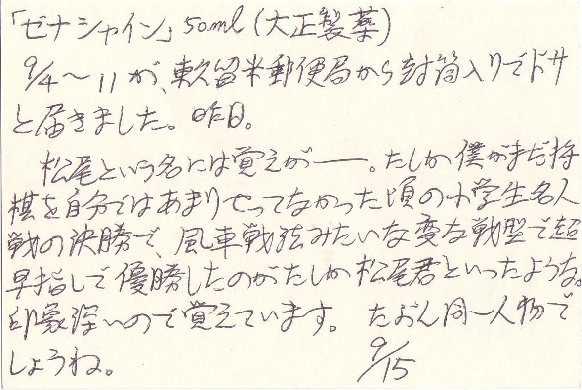 「ゼナシャイン」50ml(大正製薬)
9/4～11が、東久留米郵便局から封筒入りでドサ
と届きました。昨日。
松尾という名には覚えが――。たしか僕がまだ将
棋を自分ではあまりやってなかった頃の小学生名人
戦の決勝で、風車戦法みたいな変な戦型で超
早指しで優勝したのがたしか松尾君といったような。
印象深いので覚えています。 たぶん同一人物で
しょうね。 9/15